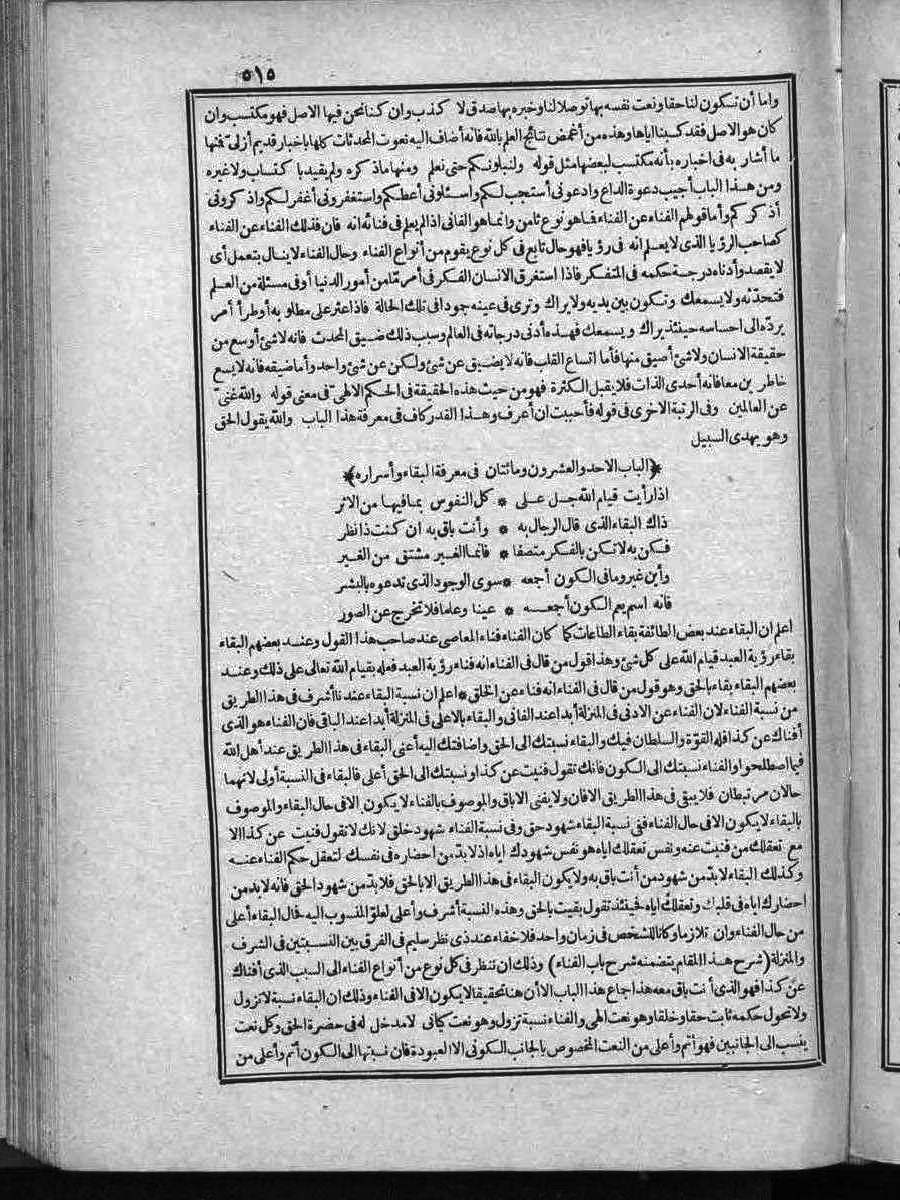 ٥١٥
واما أن تكون لنا حقا ونعت نفسه بها توصلا لنا وخبره بها صدق لا كذب وان كنا نحن فيها الاصل فهو مكتسب وان
كان هو الاصل فقد كسبنا اياها وهذه من أغمض نتائج العلم بالله فانه أضاف اليه نعوت المحدثات كلها باخبار قديم أزلى فمنها
ما أشار به فى اخباره بأنه مكتسب لبعضها مثل قوله ولنبلونكم حتى نعلم ومنها ماذكره ولم يقيد با كتساب ولا غيره
ومن هذا الباب أجيب دعوة الداع وادعونى أستجب لكم واسئلونى أعطكم واستغفرونى أغفر لكم واذكرونى
أذكركم وأما قولهم الفناء عن الفناء فما هو نوع ثامن وانما هو الفانى اذا لم يعلم فى فنائه انه فان فذلك الفناء عن الفناء
كصاحب الرؤيا الذى لا يعلم انه فى رؤيا فهو حال تابع فى كل نوع يقوم من أنواع الفناء وحال الفناء لا ينال بتعمل أى
لا يقصد وأدناه درجة حكمه فى المتفكر فاذا استغرق الانسان الفكر فى أمر تما من أمور الدنيا أو فى مسئلة من العلم
فتحدثه ولا يسمعك وتكون بين يديه ولا يراك وترى فى عينه جودا فى تلك الحالة فاذا عثر على مطلوبه أو طرأ أمر
يرده الى احساسه حينئذ يراك ويسمعك فهذه أدنى درجاته فى العالم وسبب ذلك ضيق المحدث فانه لا شئ أوسع من
حقيقة الانسان ولا شئ أضيق منها فأما اتساع القلب فانه لا يضيق عن شئ ولكن عن شئ واحد وأما ضيقه فانه لا يسع
خاطرين معا فانه أحدى الذات فلا يقبل الكثرة فهو من حيث هذه الحقيقة فى الحكم الالهى فى معنى قوله والله غنى
عن العالمين وفى الرتبة الاخرى فى قوله فأحببت ان أعرف وهذا القدر كاف فى معرفة هذا الباب والله يقول الحق
وهو يهدى السبيل
﴿الباب الاحد والعشرون ومائتان فى معرفة البقاء وأسراره﴾
اذا رأيت قيام الله جل على * كل النفوس بما فيها من الاثر
ذاك البقاء الذى قال الرجال به * وأنت باق به ان كنت ذا نظر
فكن به لا تكن بالفكر متصفا * فانما الغير مشتق من الغير
وأين غير وما فى الكون أجمعه * سوى الوجود الذى تدعوه بالبشر
فانه اسم يعم الكون أجمعه * عينا وعلما فلا تخرج عن الصور
اعلم ان البقاء عند بعض الطائفة بقاء الطاعات كما كان الفناء فناء المعاصى عند صاحب هذا القول وعند بعضهم البقاء
بقاء رؤية العبد قيام الله على كل شئ وهذا قول من قال فى الفناء انه فناء رؤية العبد فعله بقيام الله تعالى على ذلك وعند
بعضهم البقاء بقاء بالحق وهو قول من قال فى الفناء انه فناء عن الخلق * اعلم ان نسبة البقاء عندنا أشرف فى هذا الطريق
من نسبة الفناء لان الفناء عن الادنى فى المنزلة أبدا عند الفانى والبقاء بالاعلى فى المنزلة أبدا عند الباقى فان الفناء هو الذى
أفناك عن كذا فله القوة والسلطان فيك والبقاء نسبتك الى الحق واضافتك اليه أعنى البقاء فى هذا الطريق عند أهل الله
فيما اصطلحوا والفناء نسبتك الى الكون فانك تقول فنيت عن كذا ونسبتك الى الحق أعلى فالبقاء فى النسبة أولى لانهما
حالان مرتبطان فلا يبقى فى هذا الطريق الا فان ولا يفنى الا باق والموصوف بالفناء لا يكون الا فى حال البقاء والموصوف
بالبقاء لا يكون الا فى حال الفناء ففى نسبة البقاء شهود حق وفى نسبة الفناء شهود خلق لانك لا تقول فنيت عن كذا الا
مع تعقلك من فنيت عنه ونفس تعقلك اياه هو نفس شهودك اياه اذ لا بد من احضاره فى نفسك لتعقل حكم الفناء عنه
وكذلك البقاء لا بد من شهود من أنت باق به ولا يكون البقاء فى هذا الطريق الا بالحق فلا بد من شهود الحق فانه لا بد من
احضارك اياه فى قلبك وتعقلك اياه فحينئذ تقول بقيت بالحق وهذه النسبة أشرف وأعلى لعلو المنسوب اليه فحال البقاء أعلى
من حال الفناء وان تلازما وكانا للشخص فى زمان واحد فلا خفاء عند ذى نظر سليم فى الفرق بين النسبتين فى الشرف
والمنزلة (شرح هذا المقام يتضمنه شرح باب الفناء) وذلك ان تنظر فى كل نوع من أنواع الفناء الى السبب الذى أفناك
عن كذا فهو الذى أنت باق معه هذا جماع هذا الباب الا أن هنا تحقيقا لا يكون الا فى الفناء وذلك ان البقاء نسبة لا تزول
ولا تحول حكمه ثابت حقا وخلقا وهو نعت الهى والفناء نسبة تزول وهو نعت كيانى لا مدخل له فى حضرة الحق وكل نعت
ينسب الى الجانبين فهو أتم وأعلى من النعت المخصوص بالجانب الكونى الا العبودة فان نسبتها الى الكون أتم وأعلى من